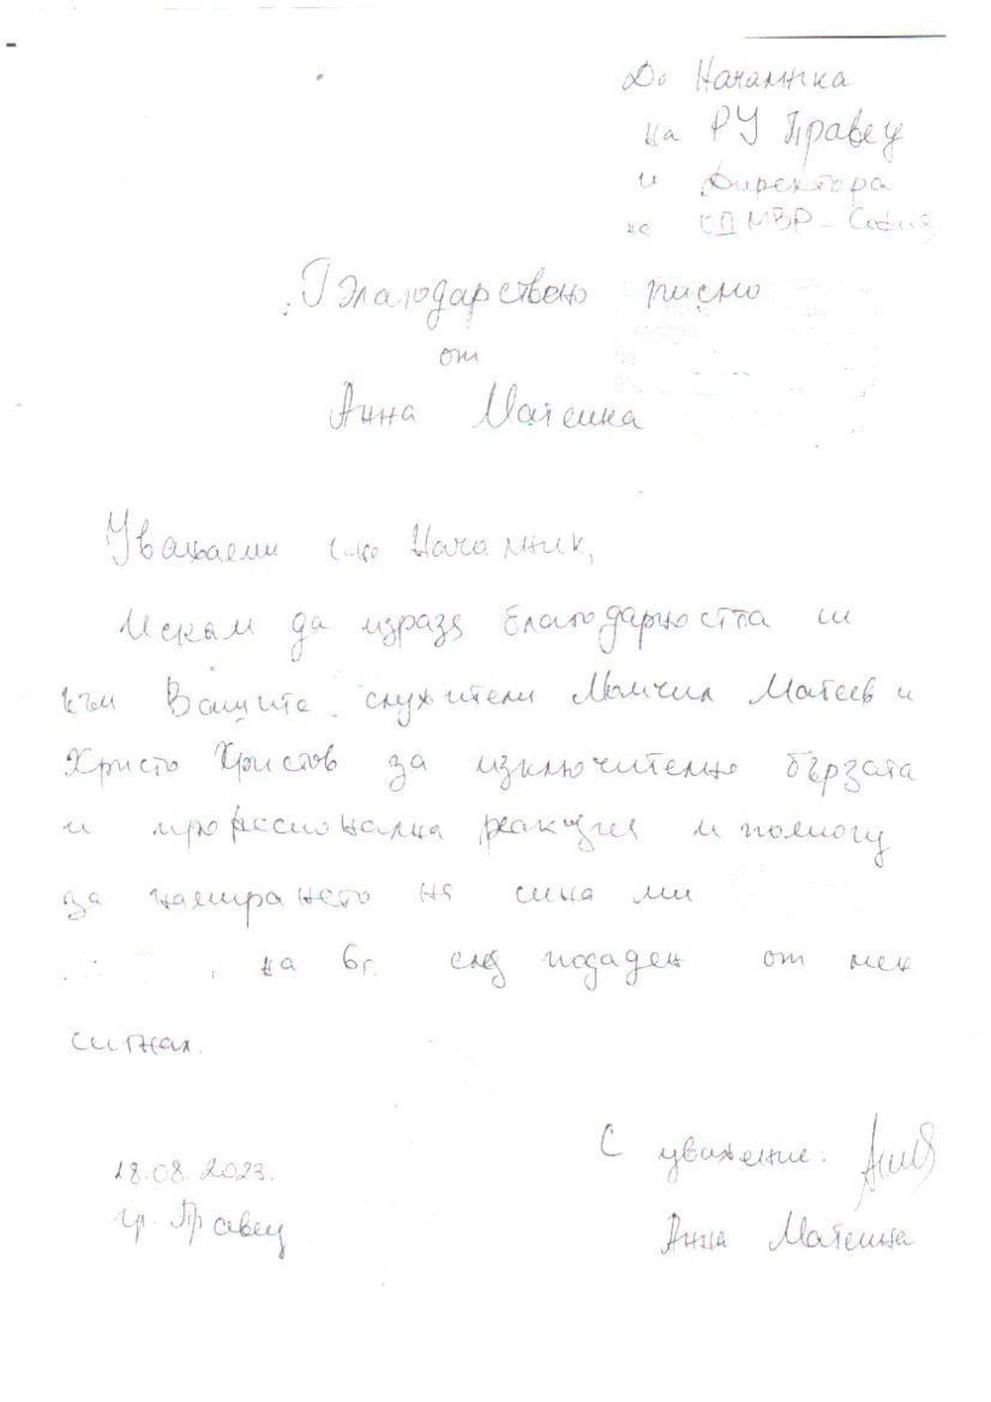 До Началника
на РУ Правец
и Директора
на СДМВР - София
Благодарствено писмо
от
Анна
Уважаеми г-не Началник,
Искам да изразя благодарността си
към Вашите служители Момчил Матеев и
Христо Христов за изключително бързата
и професионална реакция и помощ
за намирането на сина ми
на 6г. след подаден от мен
сигнал.
С уважение:
18.08.2023.
гр. Правец
Анна